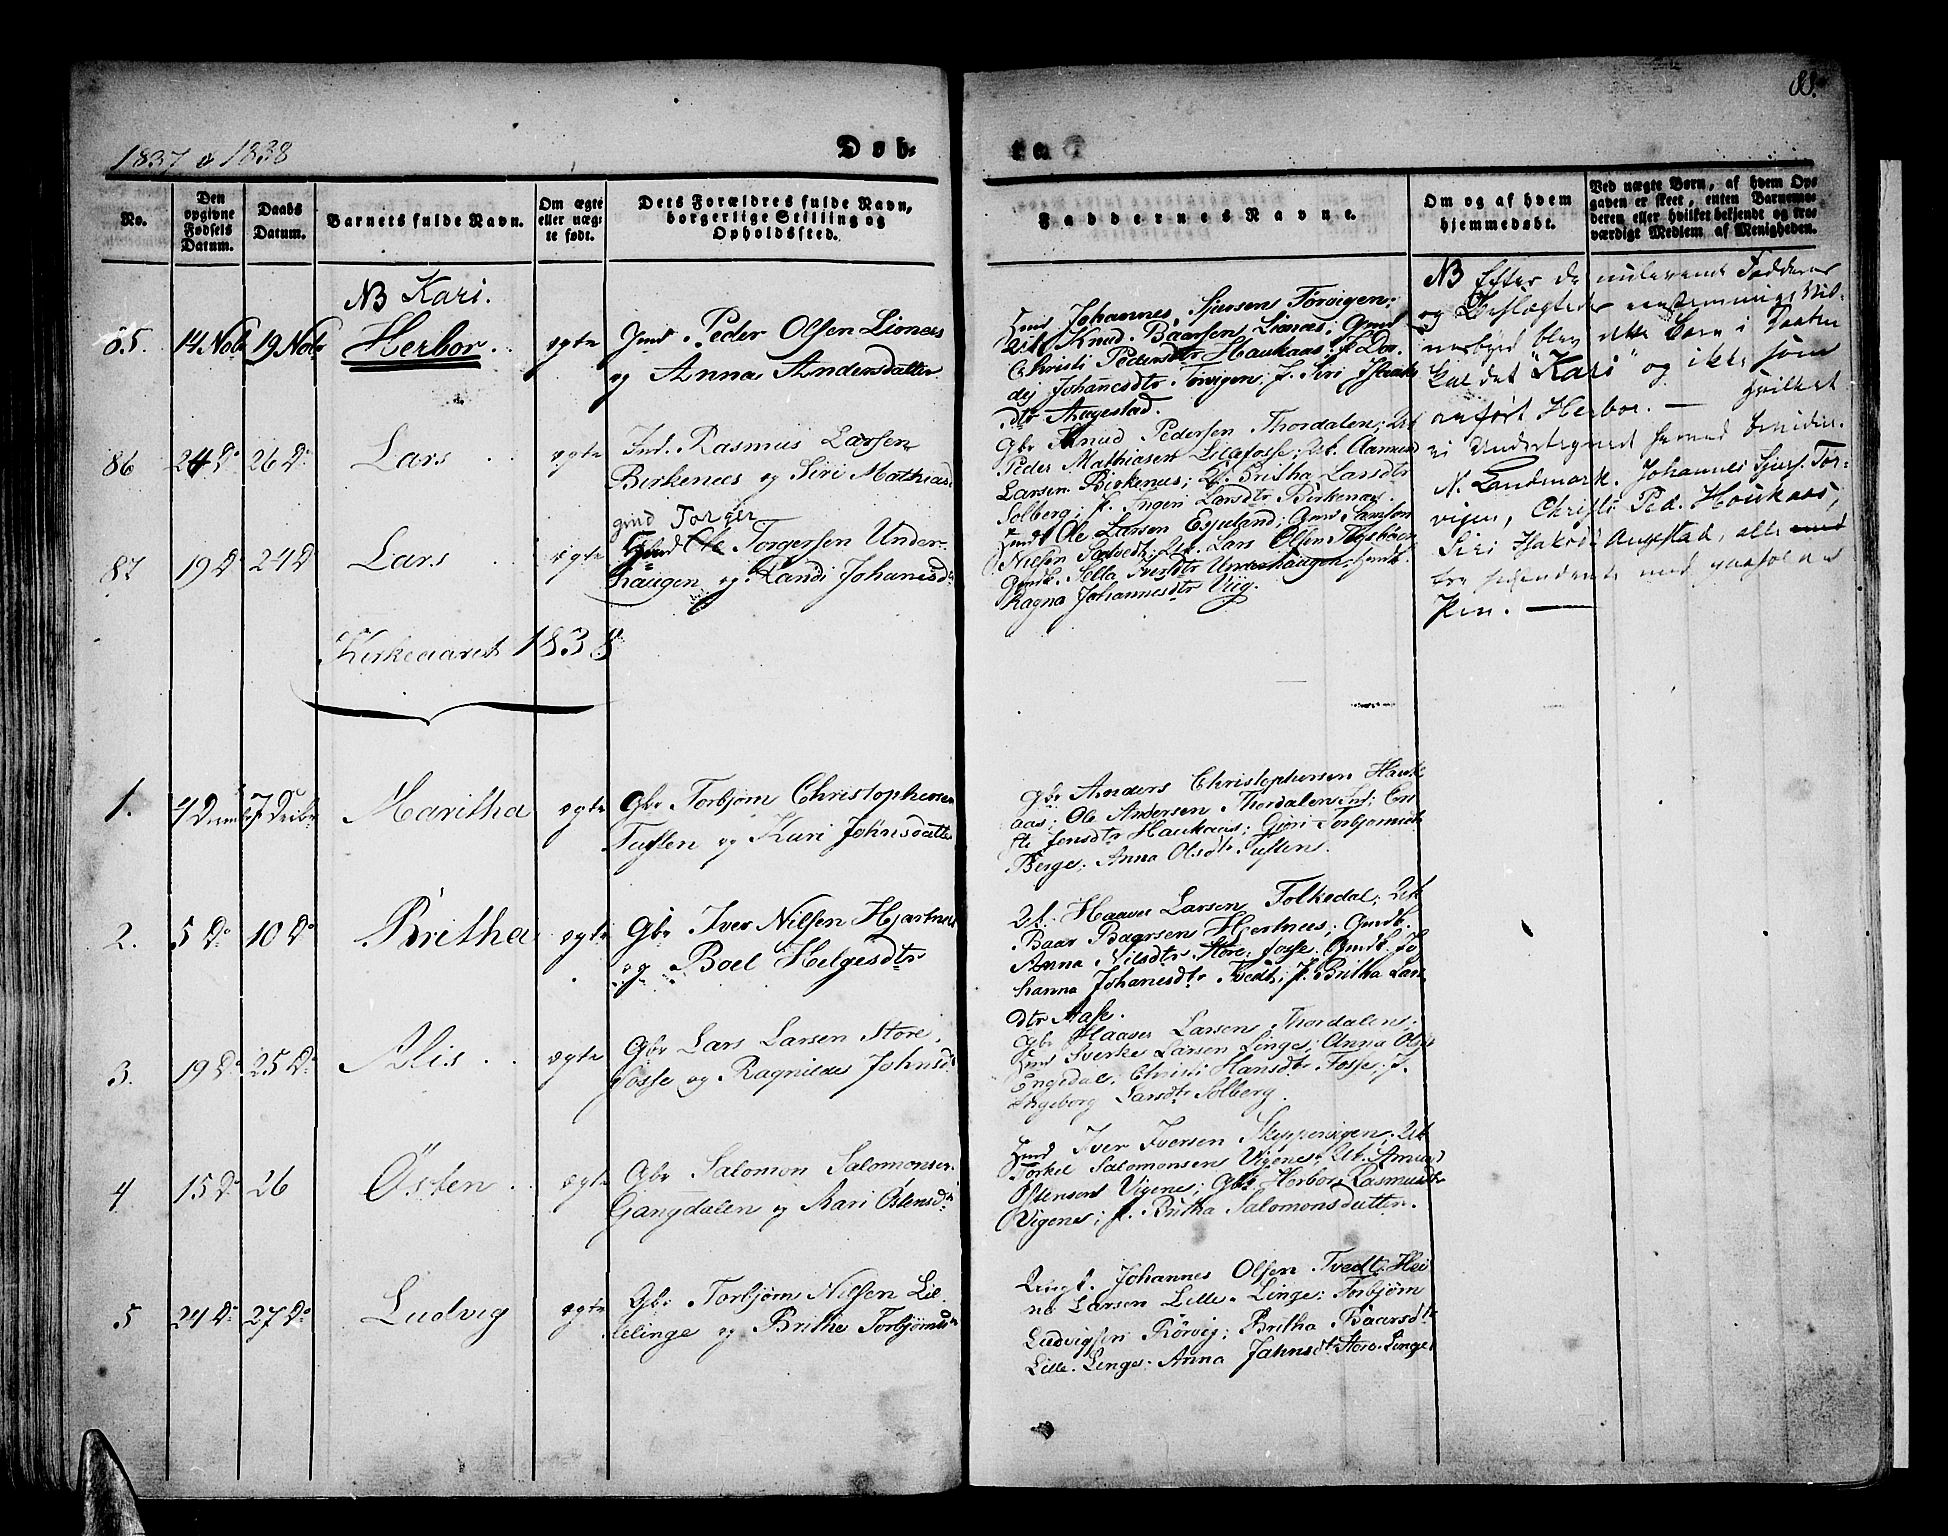 1837 & 1838
Døb-
te.
88.
No.
Den opgivne Fødsels Datum.
Daabs Datum.
Barnets fulde Navn.
Om ægte eller uægte født.
Dets Forældres fulde Navn, borgerlige Stilling og Opholdssted.
Faddernes Navne.
Om og af hvem hjemmedøbt.
Ved uægte Børn, af hvem Opgaven er skeet, enten Barnemoderen eller hvilket bekjendt og troværdigt Medlem af Menigheden.
NB Kari.
85. 14 Nobr 19 Nobr Herbor. ægte Peder Olsen Lionæs
og Anna Andersdatter
Johannes Sjursens Torvigen;
Knud Baarsen Lionæs, Gmd
Christi Pedersdtr Haukaas; f. Dor-
dej Johanesdtr Torvigen; f. Siri
dtr Augestad.
NB Efter de nulevende Fadderes
og Beslægtedes eenstemmige Vid-
nesbyrd blev dette Barn i Daaben
kaldet "Kari" og ikke som
anført Herbor. — Hvilket
vi Undertegnede herved bevidne.
N. Landmark. Johannes Sjurs. Tor-
vigen, Christi Ped. Haukaas,
Siri Augestad, alle
tre med paaholden
Pen. —
86 24 Do 26 Do Lars ægte Ind. Rasmus Larsen
Birkenes og Siri Mathiasd.
Gbr Knud Pedersen Thordalen; Ut
Peder Mathiasen Lillefosse; Ut. Aamund
Larsen Birkenes; Britha Larsdtr
Solberg; f. Ingeri Larsdtr Birkenæs.
gmd Torger
87 19 Do 24 Do Lars ægte Ole Torgersen Under-
haugen og Randi Johanesdtr
Ole Larsen Espeland; Gmd Samson
Nielsen Ut. Lars Olsen
Gmdk. Sella Iversdtr Underhaugen;
Ragna Johannesdtr Viig.
Kirkeaaret 1838
1. 7 Debr Maritha ægte Gbr Torbjørn Christophersen
Tuften og Kari Johnsdatter
Gbr Anders Christophersen Hauk-
aas; Ole Andersen Thordalen Ind; Cri-
sti Jensdtr Haukaas; Giøri Torbjørnsdtr
Berge; Anna Olsdtr Tuften.
2. 5 Do 10 Do Britha ægte Gbr Iver Nilsen Hjartnes
og Boel Helgesdtr
Ut. Haaver Larsen Folkedal; Ut
Baar Baarsen Hjertnes; Gmdk.
Anna Nilsdtr Store-Fosse; Gmdk. Jo-
hanna Johanesdtr Tvedt; f. Britha Lars-
dtr Aase.
3. 19 Do 25 Do Alis ægte Gbr Lars Larsen Store-
fosse og Ragnilde Johnsd.
Gbr Haaver Larsen Thordalen;
Sverke Larsen Linge; Anna Ols
Engedal; Christi Hansdtr Fosse; f.
Ingeborg Larsdtr Solberg.
4 15 Do 26 Østen ægte Gbr Salomon Salomonsen
Gangdalen og Kari Østensdtr
Iver Iversen Skippervigen; Ut
Torkel Salomonsen Vigenes; Ut. Amund
Østensen Vigenes; Gbr Herbor Rasmusdtr
Vigenes; f. Britha Salomonsdatter.
5 24 Do 27 Do Ludvig ægte Gbr Torbjørn Nilsen Lil-
lelinge og Britha Torbjørnsdtr
Johannes Olsen Tvedt; Hei-
ne Larsen Lille-Linge; Torbjørn
Ludvigsen Rørvig; Britha Baarsdtr
Lille-Linge; Anna Johnsdtr Store-Linge.